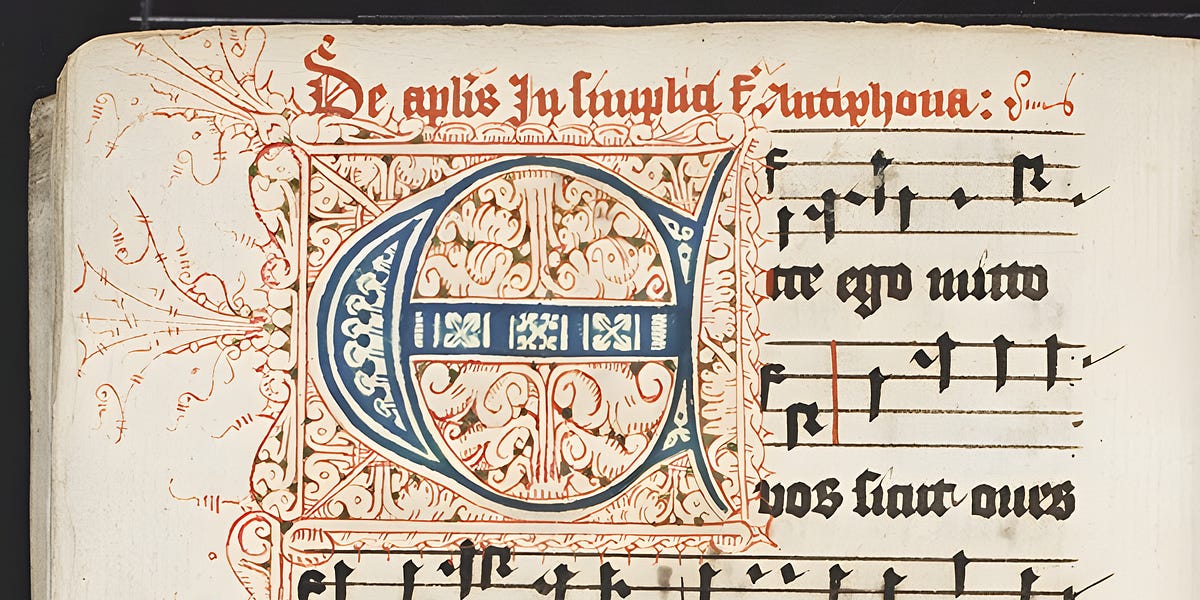 De aplis In simplici f Antiphona:
Ecce ego mitto
vos sicut oues